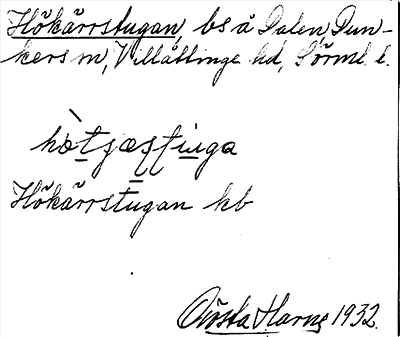 Hökärrstugan, bs å Dalen, Dun-
kers sn, Villåttinge hd, Sörml. l.
Hökärrstugan kb
Gösta Harne 1932.